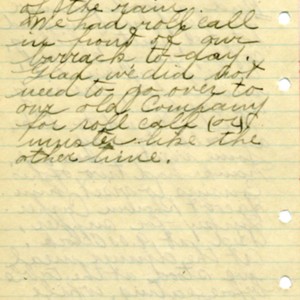 of the rain.
We had roll call
in front of our
barrack to-day.
Glad we did not
need to go over to
our old Company
for roll call (or)
muster like the
other time.